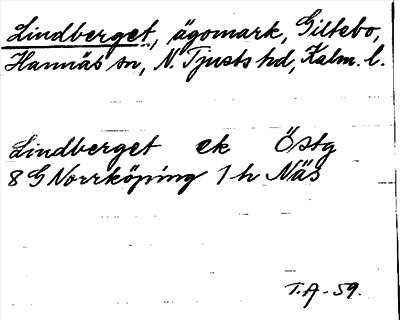 Lindberget, ägomark, Giltebo,
Hannäs sn, N. Tjusts hd, Kalm. l.
Lindberget ek Östg
8 G Norrköping 1 h Näs
T.A-59.